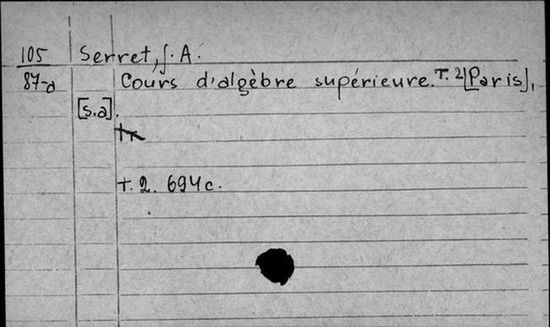 105 Serret, J. A.
87-a Cours d'algèbre supérieure. T. 2 [Paris],
[s.a].
T. 2. 694 c.